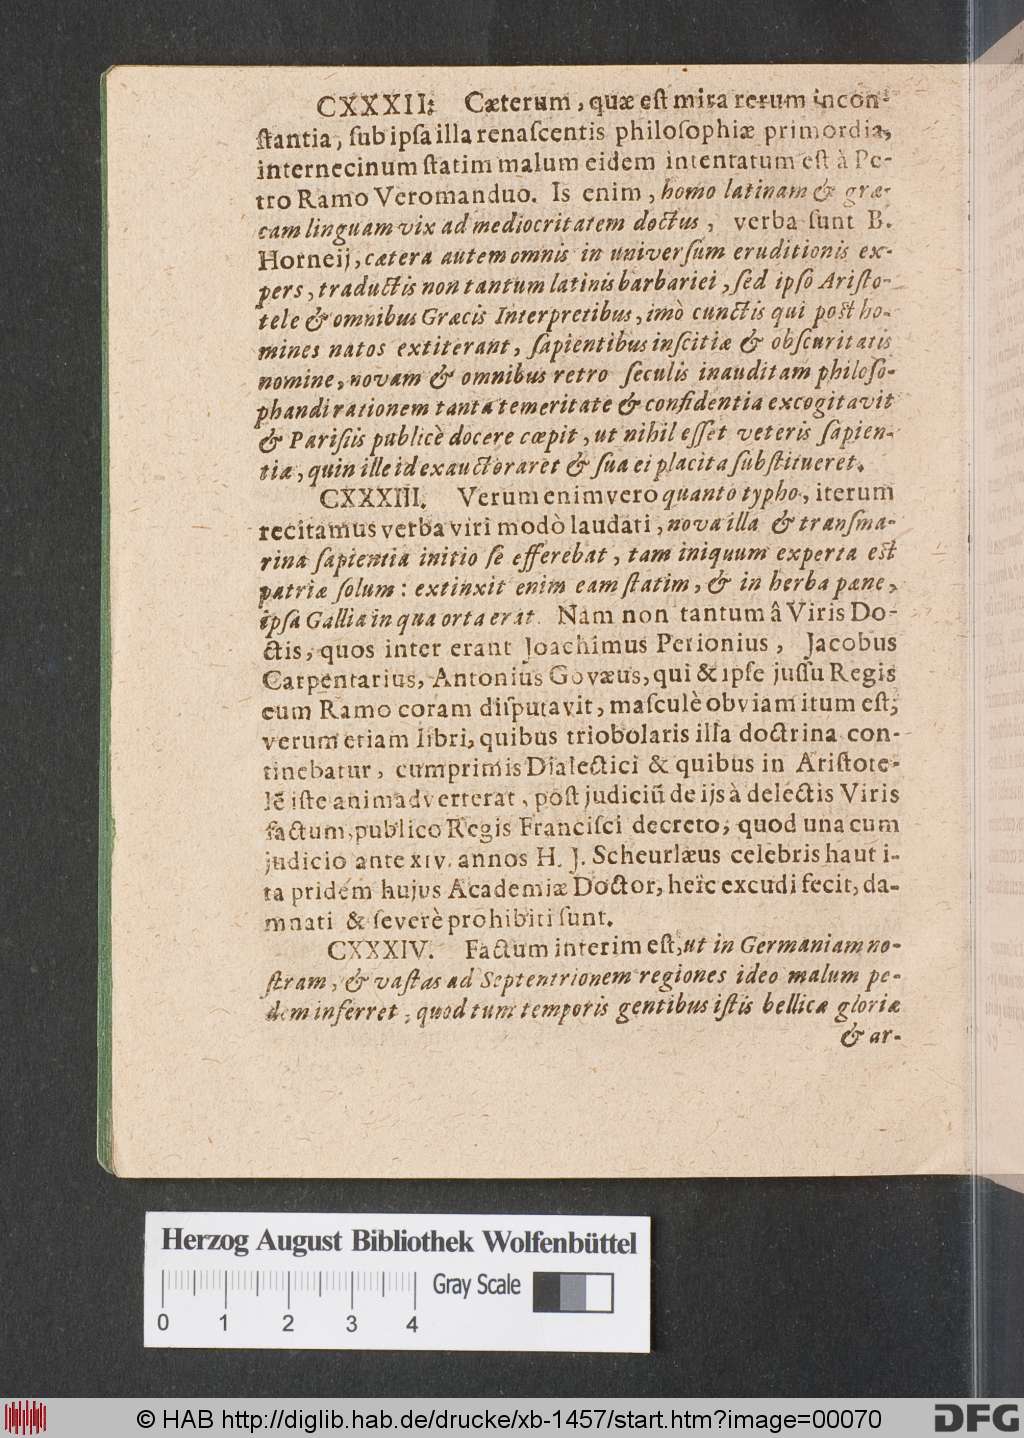 CXXXII: Cæterum, quæ est mira rerum incon-
ſtantia, ſub ipſa illa renaſcentis philoſophiæ primordia,
internecinum ſtatim malum eidem intentatum eſt à Pe-
tro Ramo Veromanduo. Is enim, homo latinam & græ-
cam linguam vix ad mediocritatem doctus, verba ſunt B.
Horneij, cætera autem omnis in univerſum eruditionis ex-
pers, traductis non tantum latinis barbariei, ſed ipſo Ariſto-
tele & omnibus Græcis Interpretibus, imò cunctis qui poſt ho-
mines natos extiterant, ſapientibus inſcitiæ & obſcuritatis
nomine, novam & omnibus retro ſeculis inauditam philoſo-
phandi rationem tanta temeritate & confidentia excogitavit
& Pariſiis publicè docere cœpit, ut nihil eſſet veteris ſapien-
tiæ, quin ille id exauctoraret & ſua ei placita ſubſtitueret.
CXXXIII. Verum enimvero quanto typho, iterum
recitamus verba viri modò laudati, nova illa & tranſma-
rina ſapientia initio ſe efferebat, tam iniquum experta est
patriæ ſolum: extinxit enim eam ſtatim, & in herba pæne,
ipſa Gallia in qua orta erat. Nam non tantum â Viris Do-
ctis, quos inter erant Joachimus Perionius, Jacobus
Carpentarius, Antonius Govæus, qui & ipſe juſſu Regis
cum Ramo coram diſputavit, maſculè obviam itum eſt;
verum etiam libri, quibus triobolaris illa doctrina con-
tinebatur, cumprimis Dialectici & quibus in Ariſtote-
lẽ iſte animadverterat, poſt judiciũ de ijs à delectis Viris
factum, publico Regis Franciſci decreto, quod una cum
judicio ante XIV. annos H. J. Scheurlæus celebris haut i-
ta pridem hujus Academiæ Doctor, heic excudi fecit, da-
mnati & ſeverè prohibiti ſunt.
CXXXIV. Factum interim eſt, ut in Germaniam no-
ſtram, & vaſtas ad Septentrionem regiones ideo malum pe-
dem inferret, quod tum temporis gentibus iſtis bellica gloriæ
& ar-
Herzog August Bibliothek Wolfenbüttel
Gray Scale
0 1 2 3 4
© HAB http://diglib.hab.de/drucke/xb-1457/start.htm?image=00070
DFG